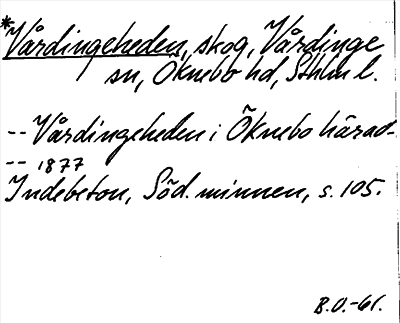 *Vårdingeheden, skog, Vårdinge
sn, Öknebo hd, Sthlm l.
-- Vårdingeheden i Öknebo härad -
-- 1877
Indebetou, Söd. minnen, s. 105.
B.O.-61.